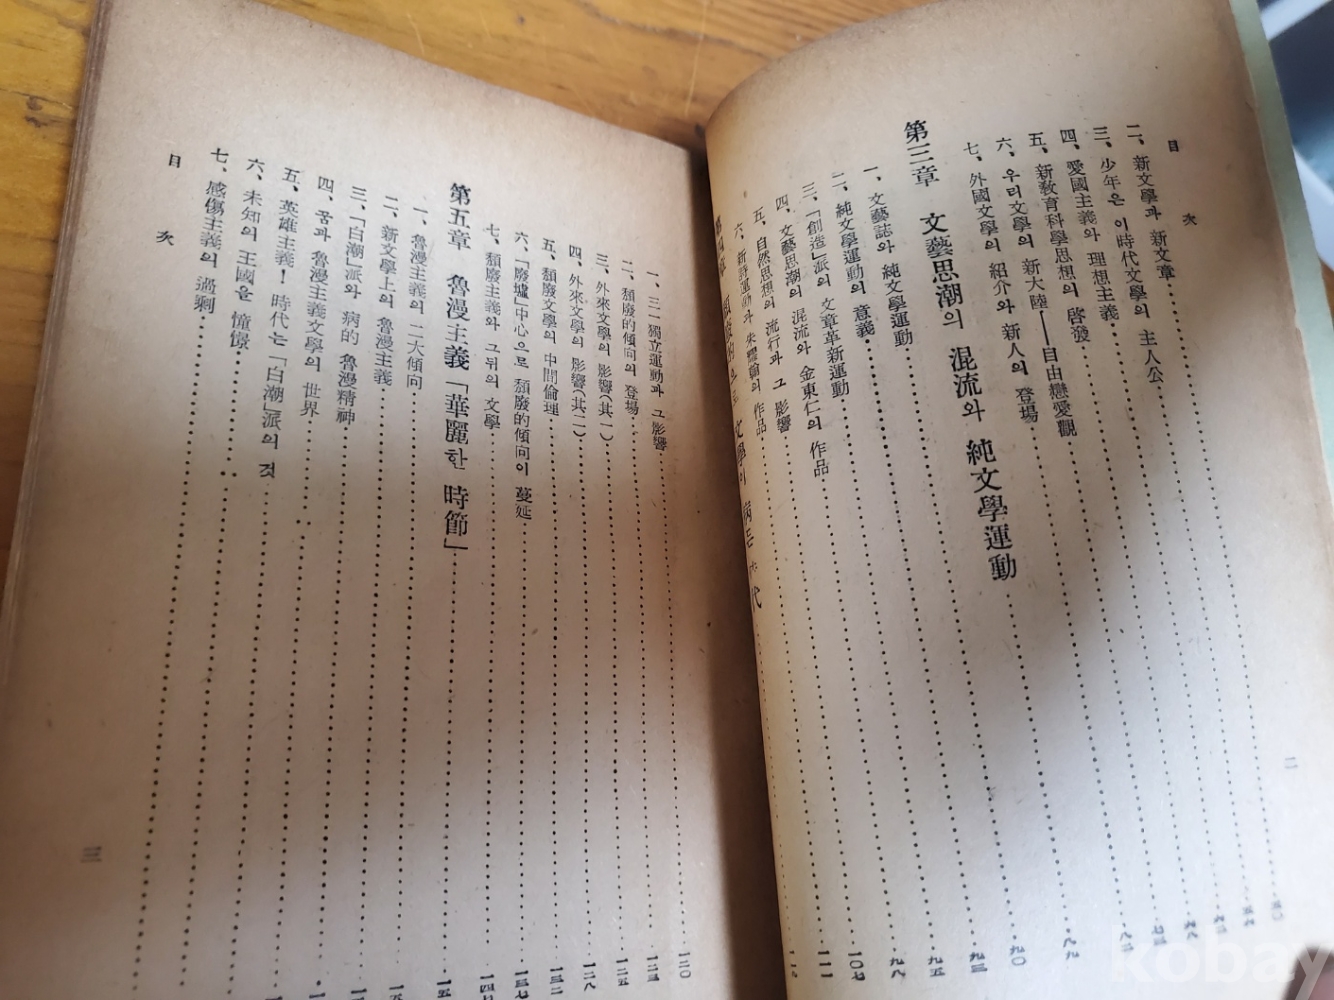 目 次
二、新文學과 新文章
三、少年은 이時代文學의 主人公
四、愛國主義와 理想主義
五、新敎育科學思想의 啓發
六、우리文學의 新大陸——自由戀愛觀
七、外國文學의 紹介와 新人의 登場
第三章 文藝思潮의 混流와 純文學運動
一、文藝誌와 純文學運動 九五
二、純文學運動의 意義 九八
三、「創造」派의 文章革新運動 一〇七
四、文藝思潮의 混流와 金東仁의 作品
五、自然思想의 流行과 그 影響
六、新詩運動와 朱耀翰의 作品
二
一、三一獨立運動과 그 影響 一二〇
二、頹廢的傾向의 登場 一二三
三、外來文學의 影響(其一) 一二五
四、外來文學의 影響(其二) 一二八
五、頹廢文學의 中間倫理 一三二
六、「廢墟」中心으로 頹廢的傾向이 蔓延 一三七
七、頹廢主義와 그뒤의 文學
第五章 魯漫主義「華麗한 時節」
一、魯漫主義의 二大傾向
二、新文學上의 魯漫主義
三、「白潮」派와 病的 魯漫精神
四、꿈과 魯漫主義文學의 世界
五、英雄主義! 時代는「白潮」派의 것
六、未知의 王國을 憧憬
七、感傷主義의 過剩
目 次
三
kobay